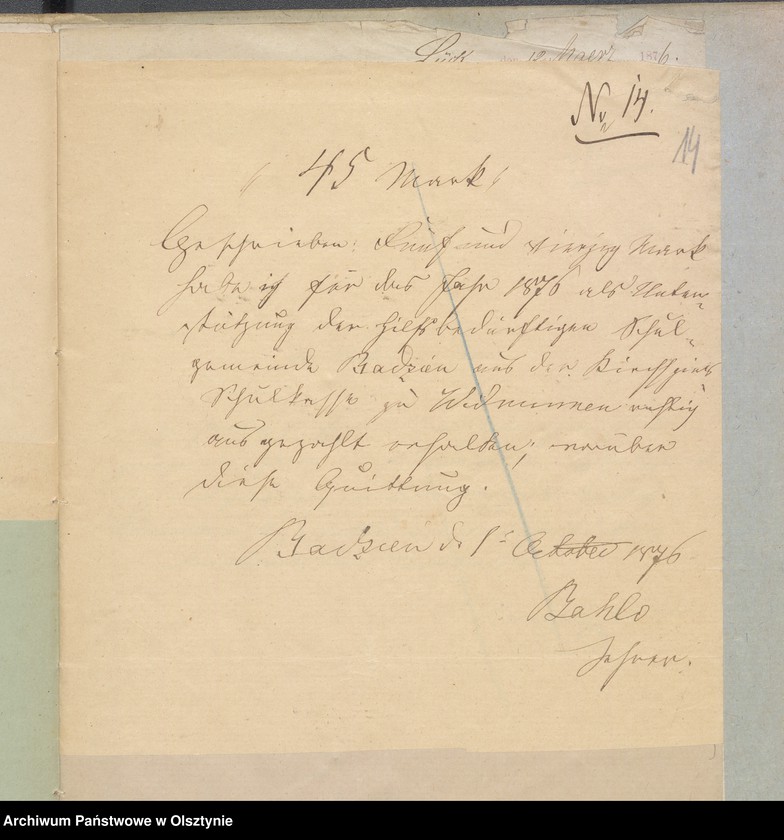 Lyck, den 12 Maerz 1876.
No 14.
14
45 Mark,
Geschrieben: Fünf und vierzig Mark
habe ich für das Jahr 1876 als Unter-
stützung der hilfsbedürftigen Schul-
gemeinde Badzien aus der Kirchspiels
Schulkasse zu Widminnen richtig
ausgezahlt erhalten; worüber
diese Quittung.
Badzien d. 1t October 1876
Bahlo
Lehrer.
Archiwum Państwowe w Olsztynie